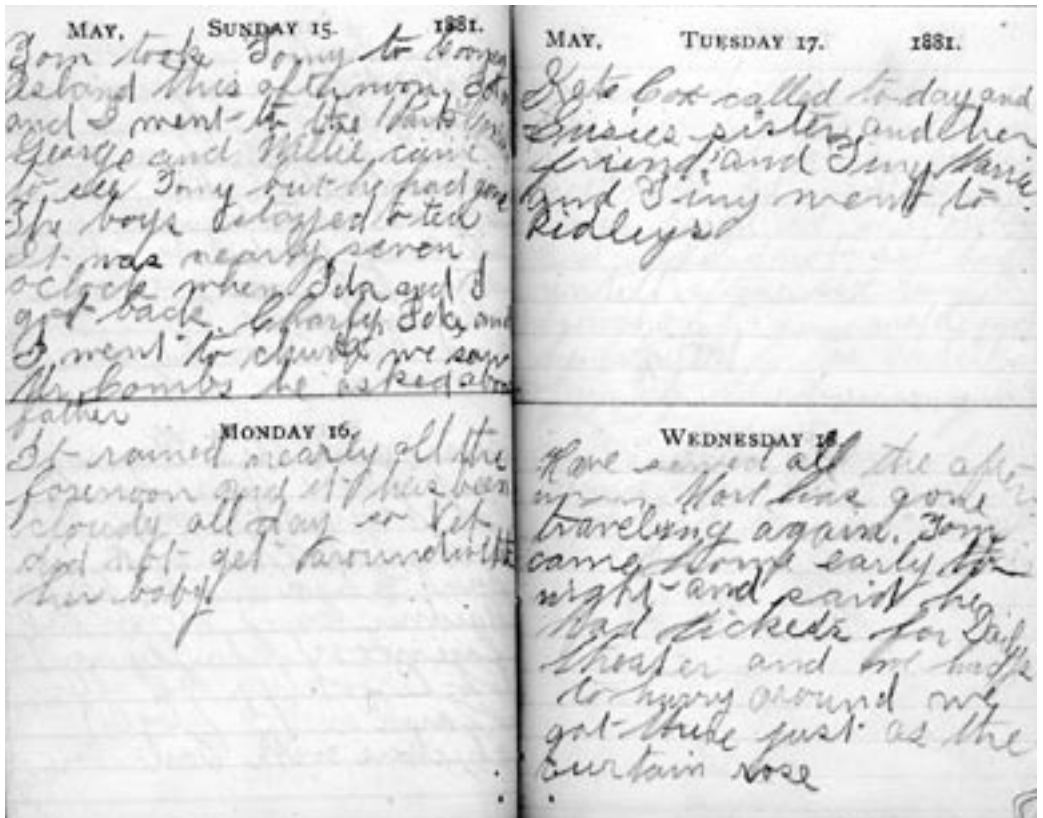 MAY, SUNDAY 15. 1881.
Tom took Tomy to Coney
Island this afternoon,
and I went to the Park
George and Willie came
to see Tomy but he had gone
The boys stayed to tea
It was nearly seven
oclock when Ida and I
got back. Charly, and
I went to church we saw
Mr Combs he asked about
father
MONDAY 16.
It rained nearly all the
forenoon and it has been
cloudy all day so
did not get around with
her baby
MAY, TUESDAY 17. 1881.
Kate Cox called to day and
Susies sister and her
friend, and Tiny
and Tiny went to
Ridleys
WEDNESDAY 18.
Have sewed all the after
noon Mort has gone
traveling again. Tom
came home early to
night and said he
had tickets for Daly
theater and we had
to hurry around we
got there just as the
curtain rose